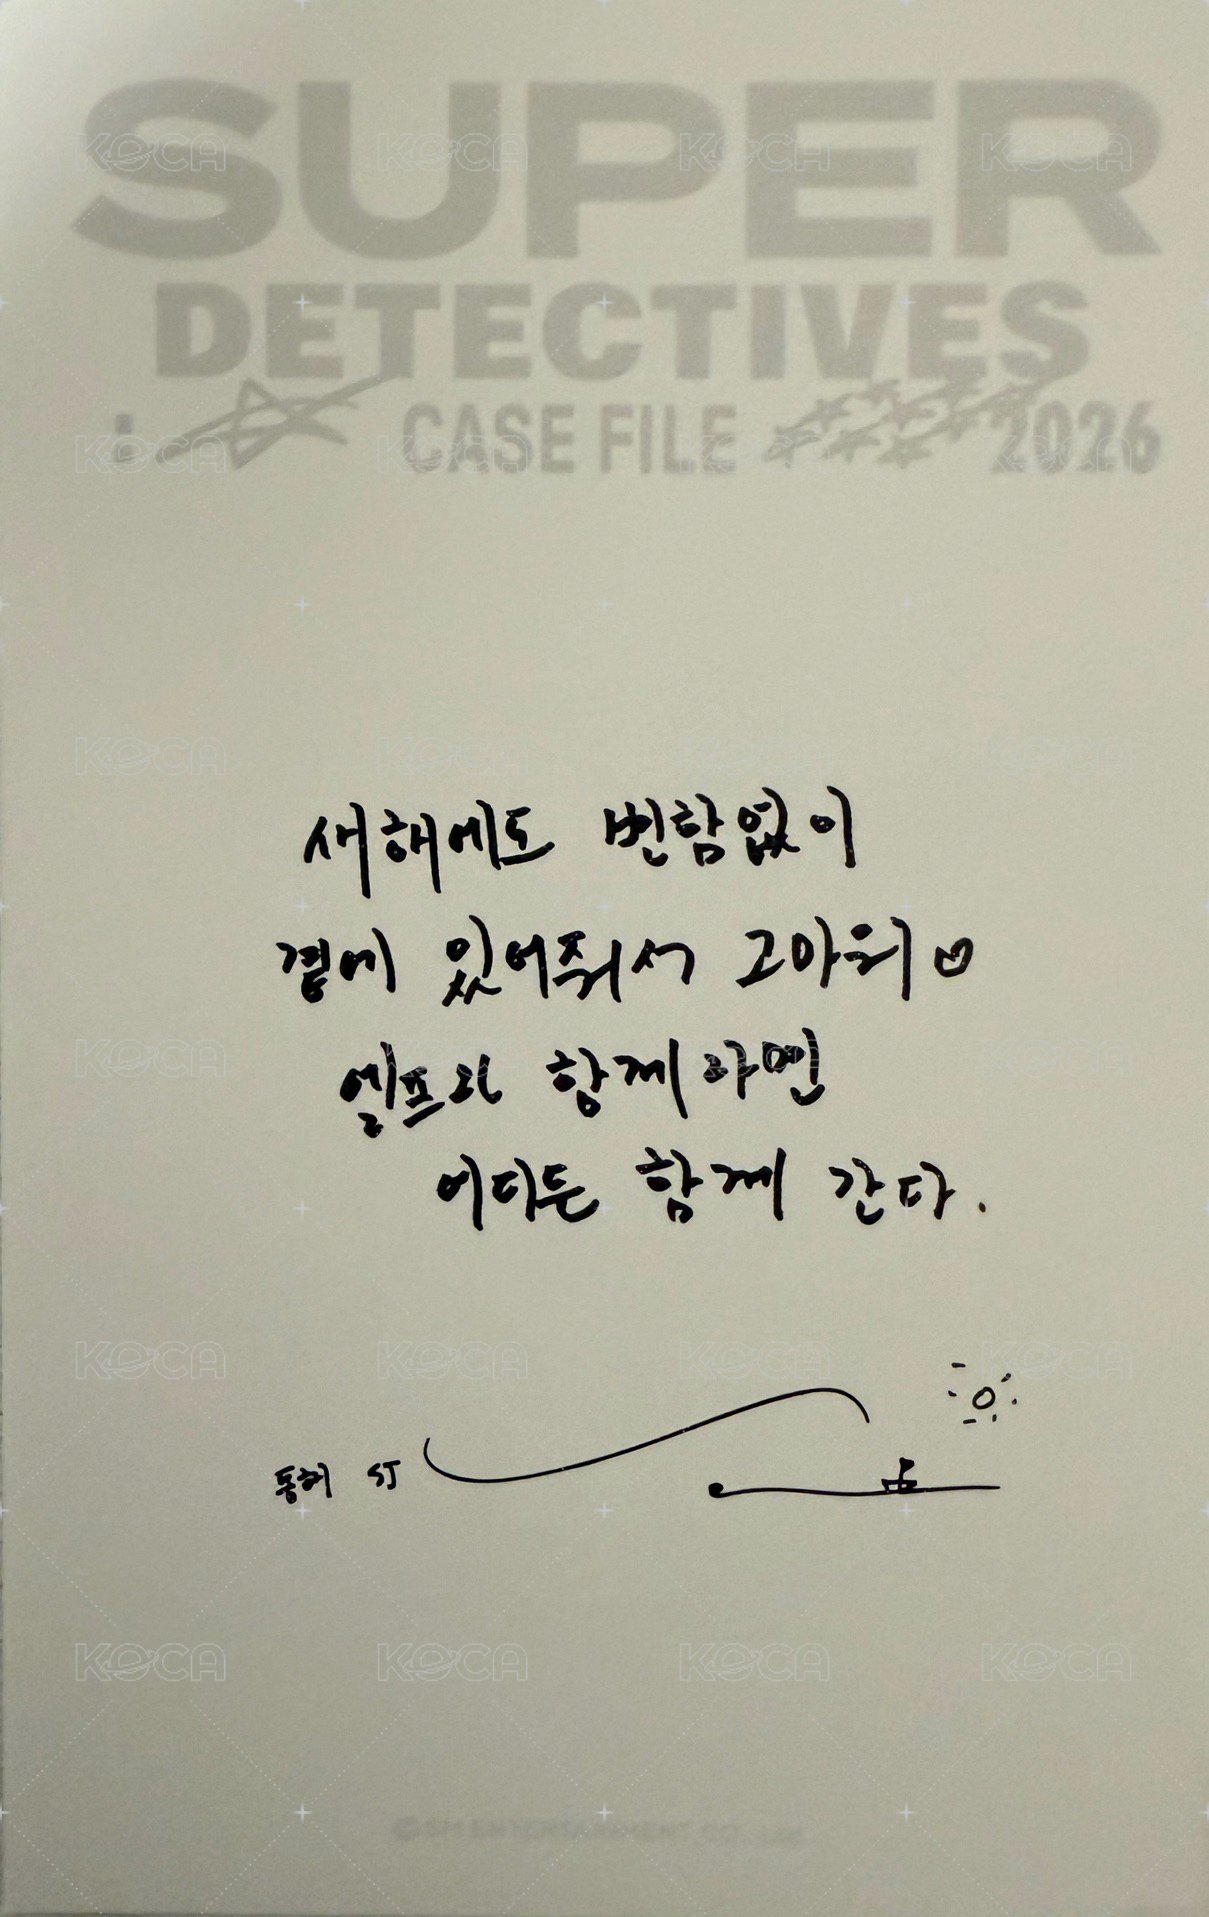 SUPER
DETECTIVES
: CASE FILE 2026
새해에도 변함없이
곁에 있어줘서 고마워♡
엘프와 함께라면
어디든 함께 간다.
동해 SJ
© SM ENTERTAINMENT CO., Ltd.
KOCA